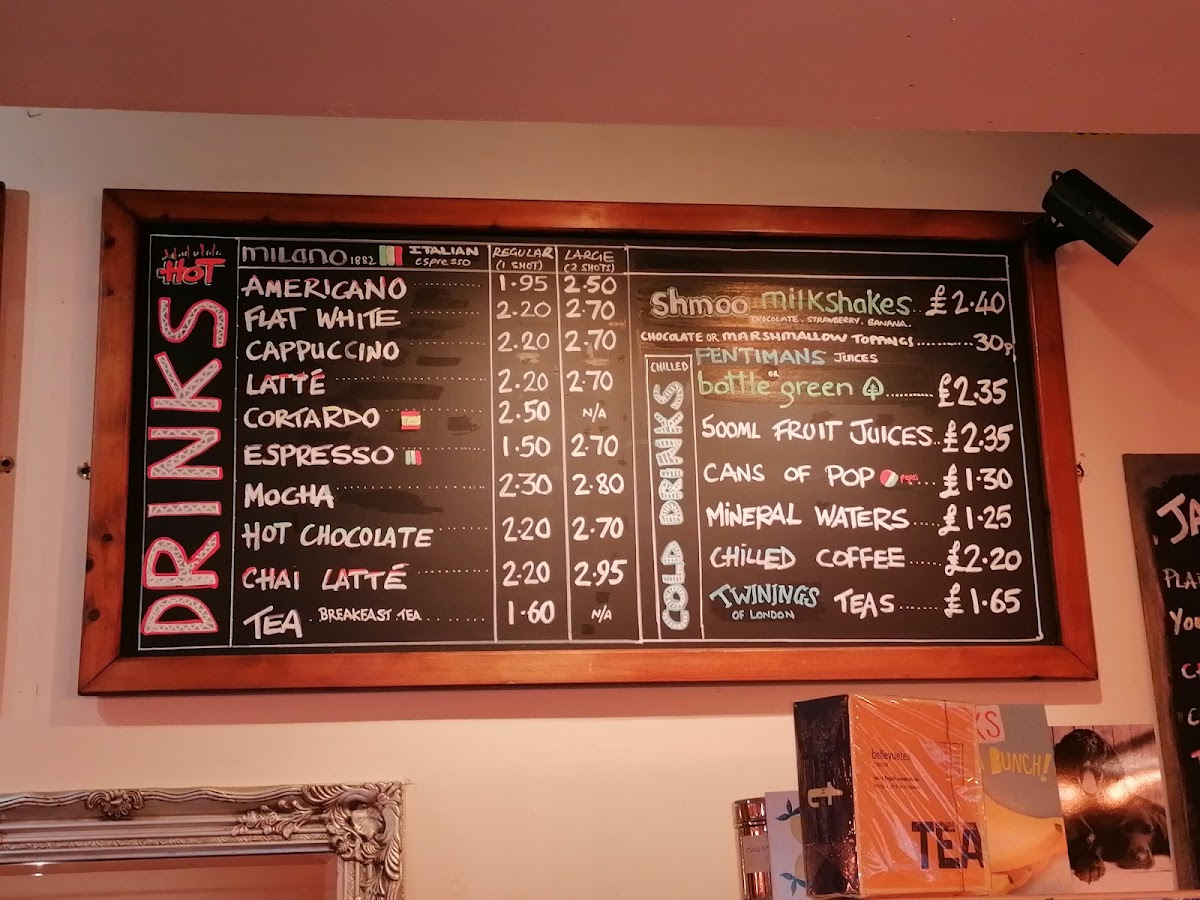 HOT
DRINKS
MILANO 1882 ITALIAN espresso REGULAR (1 SHOT) LARGE (2 SHOTS)
AMERICANO 1.95 2.50
FLAT WHITE 2.20 2.70
CAPPUCCINO 2.20 2.70
LATTÉ 2.20 2.70
CORTARDO 2.50 N/A
ESPRESSO 1.50 2.70
MOCHA 2.30 2.80
HOT CHOCOLATE 2.20 2.70
CHAI LATTÉ 2.20 2.95
TEA . BREAKFAST TEA 1.60 N/A
Shmoo milkshakes £2.40
CHOCOLATE. STRAWBERRY. BANANA.
CHOCOLATE OR MARSHMALLOW TOPPINGS 30p
CHILLED
COLD DRINKS
FENTIMANS JUICES
OR
bottle green £2.35
500ML FRUIT JUICES £2.35
CANS OF POP pepsi £1.30
MINERAL WATERS £1.25
CHILLED COFFEE £2.20
TWININGS OF LONDON TEAS £1.65
YOU
t
TEA
BUNCH!